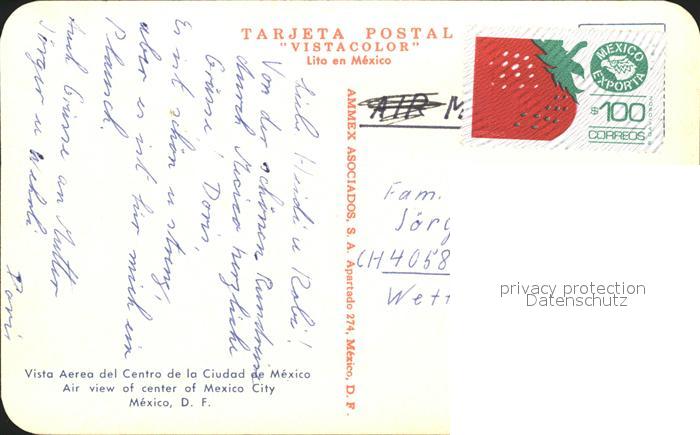 TARJETA POSTAL
"VISTACOLOR"
Lito en México
MEXICO
EXPORTA
$100
CORREOS
AMMEX ASOCIADOS, S. A. Apartado 274, México, D. F.
AIR M
Liebe Heidi u Robi!
Von der schönen Rundreise
durch Mexico herzliche
Grüsse! Doris,
Es ist schön u streng,
aber es ist für mich ein
Plausch.
Auch Grüsse an Mutter
Jörger u
Doris
Fam.
Jörg
CH 4058
Wett
privacy protection
Datenschutz
Vista Aerea del Centro de la Ciudad de México
Air view of center of Mexico City
México, D. F.